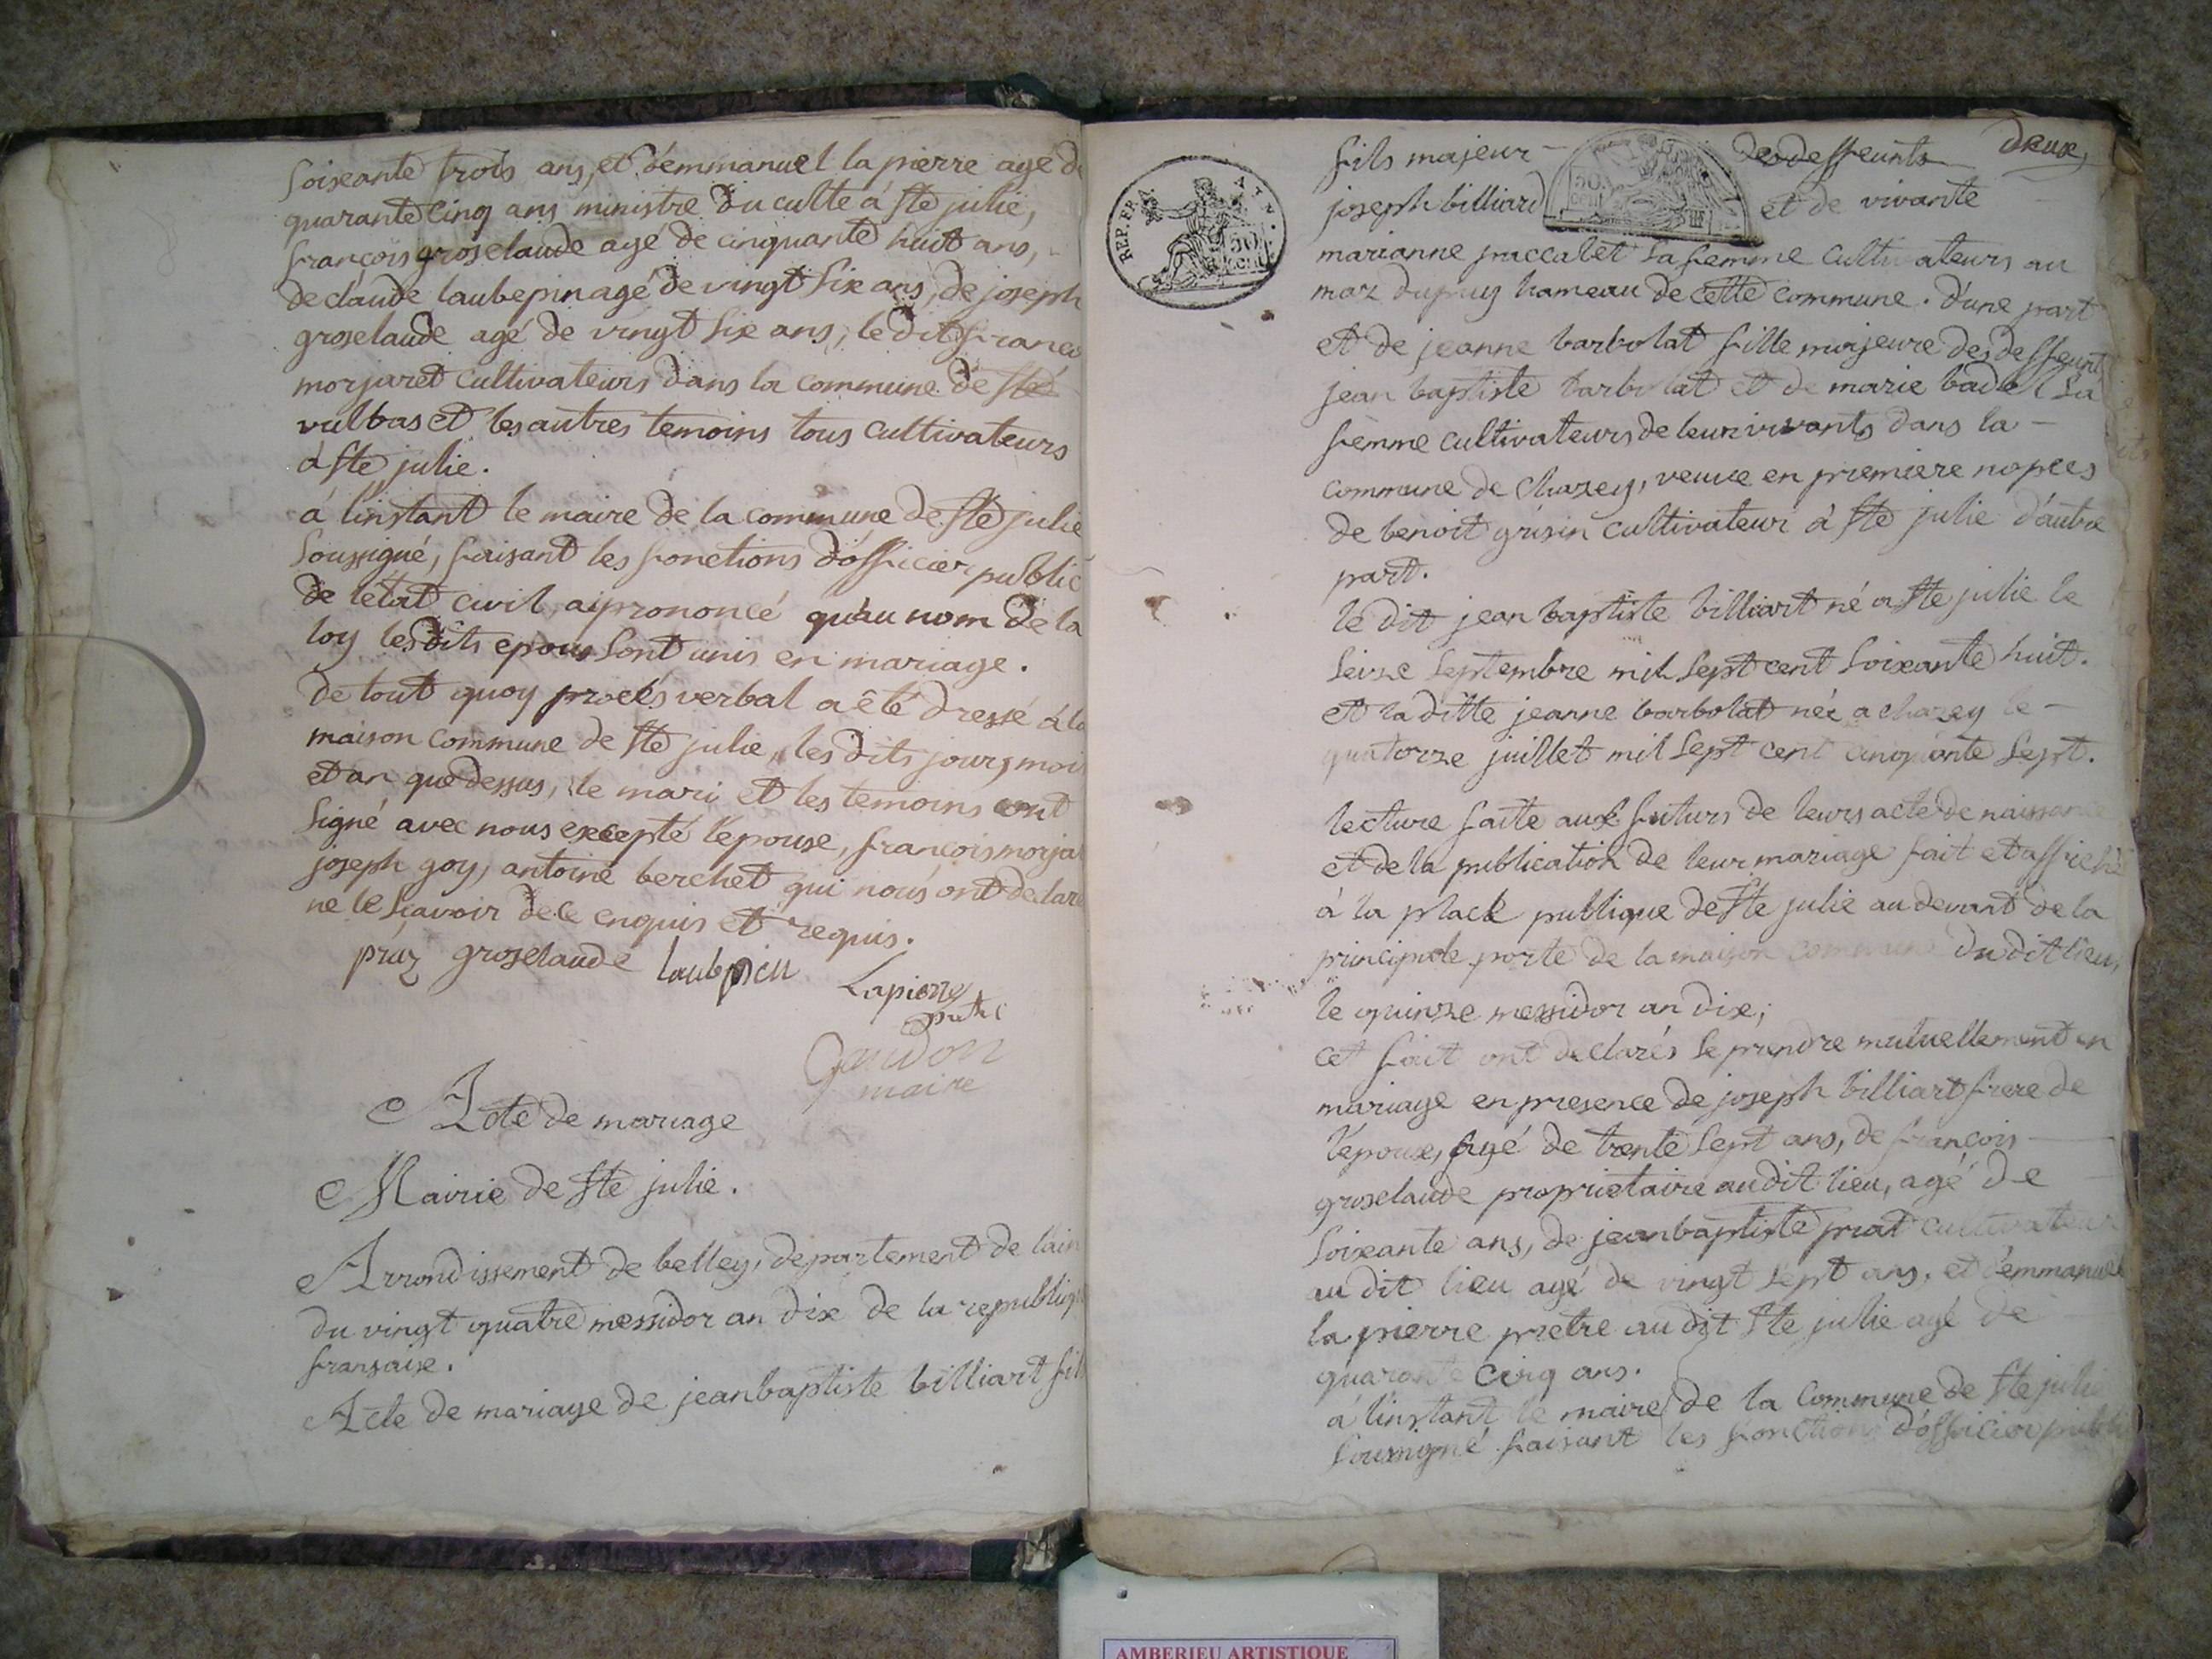 soixante trois ans, et d'emmanuel la pierre agé de
quarante cinq ans ministre du culte à ste julie,
françois groselaude agé de cinquante huit ans,
de claude laubepin agé de vingt six ans, de joseph
groselaude agé de vingt six ans, le dit
morjaret cultivateurs dans la commune de ste
vulbas et les autres temoins tous cultivateurs
à ste julie.
à linstant le maire de la commune de ste julie
soussigné, faisant les fonctions d'officier public
de letat civil a prononcé qu'au nom de la
loy les dits epoux sont unis en mariage.
de tout quoy procés verbal a êté dressé à la
maison commune de ste julie, les dits jour, moi
et an que dessus, le mari et les temoins ont
signé avec nous excepté l'epouse, françois morja
joseph goy, antoine berchet qui nous ont declaré
ne le sçavoir de ce enquis et requis.
praz groselaude laubepin Lapierre
pretre
Gaudon
maire
Acte de mariage
Mairie de ste julie.
Arrondissement de belley, departement de lain
du vingt quatre messidor an dix de la republiq
fransaise.
Acte de mariage de jean baptiste billiart fils
deux
REP. FRA.
50
cen
fils majeur des deffeunts
joseph billiard et de vivante
marianne paccalet sa femme cultivateurs au
maz dupuy hameau de cette commune. d'une part
et de jeanne barbolat fille majeure des deffeunt
jean baptiste barbolat et de marie badel sa
femme cultivateurs de leur vivants dans la
commune de chazey, veuve en premiere nopces
de benoit grisin cultivateur à ste julie d'autre
part.
le dit jean baptiste billiart né a ste julie le
seize septembre mil sept cent soixante huit.
et la ditte jeanne barbolat née a chazey le
quatorze juillet mil sept cent cinquante sept.
lecture faite aux futurs de leurs acte de naissance
et de la publication de leur mariage fait et affiché
à la place publique de ste julie au devant de la
principale porte de la maison commune du dit lieu,
le quinze messidor an dix;
cet fait ont declarés se prendre mutuellement en
mariage en presence de joseph billiart frere de
l'epoux, agé de trente sept ans, de françois
groselaude proprietaire au dit lieu, agé de
soixante ans, de jean baptiste prat cultivateur
au dit lieu agé de vingt sept ans, et d'emmanuel
la pierre pretre au dit ste julie agé de
quarante cinq ans.
à l'instant le maire de la commune de ste julie
soussigné faisant les fonctions d'officier public
AMBERIEU ARTISTIQUE